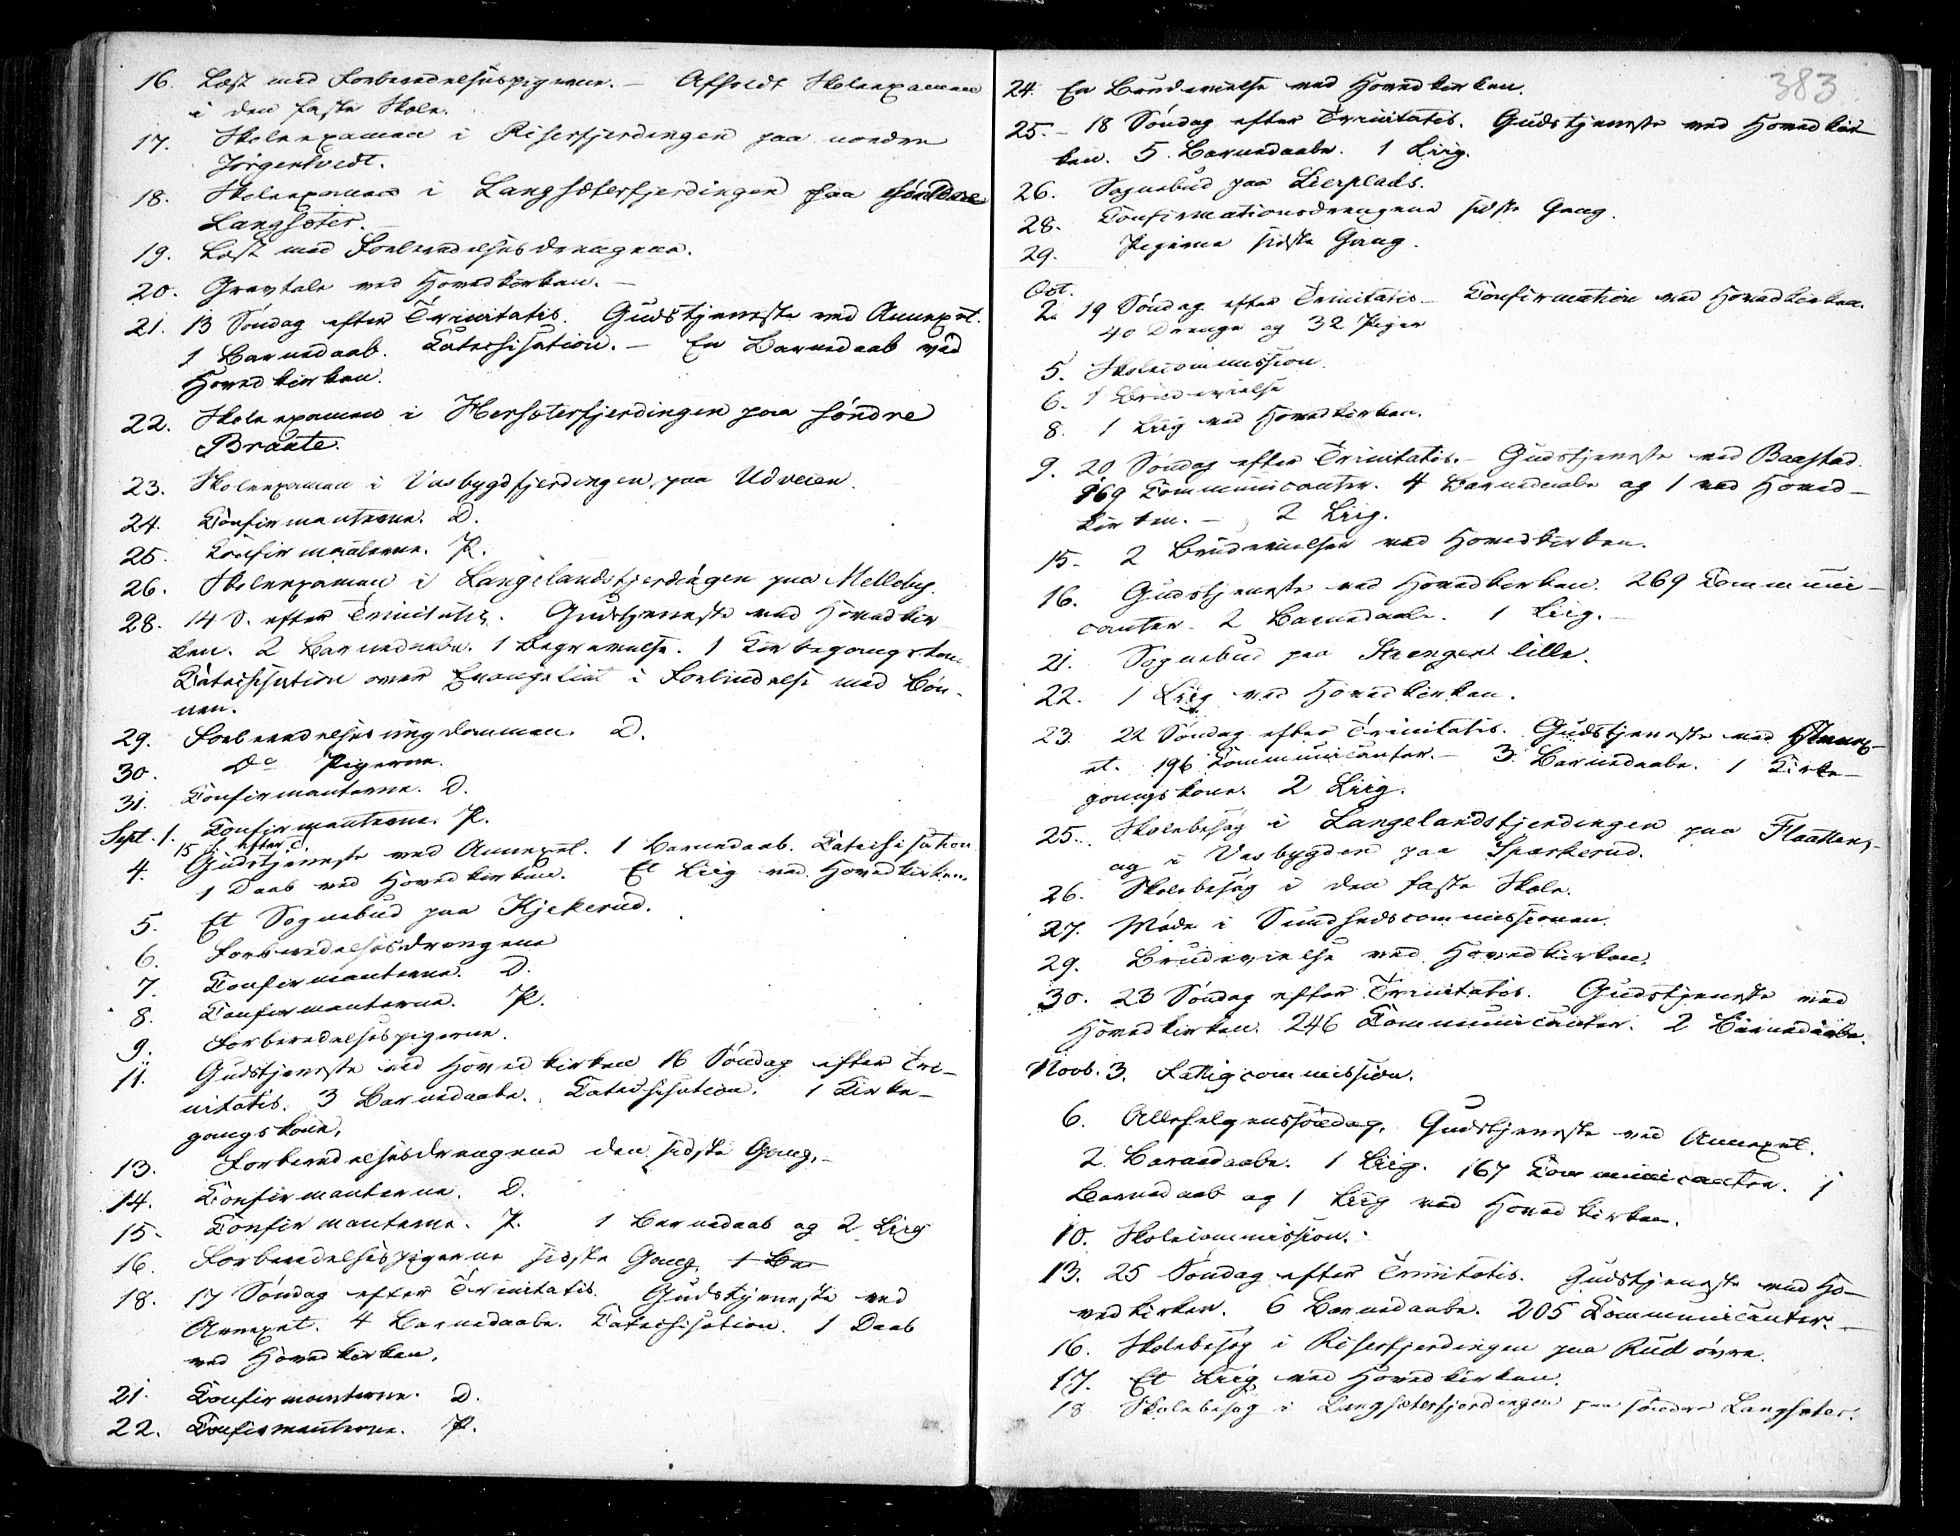 16. Læst med Forberedelsespigerne. – Afholdt Skoleexamen
i den faste Skole.
17. Skoleexamen i Riserfjerdingen paa nordre
Jörgentvedt.
18. Skoleexamen i Langsæterfjerdingen paa söndre
Langsæter.
19. Læst med Forberedelsesdrengene.
20. Gravtale ved Hovedkirken. –
21. 13 Söndag efter Trinitatis. Gudstjeneste ved Annexet.
1 Barnedaab. Katechisation. – En Barnedaab ved
Hovedkirken.
22. Skoleexamen i Hersæterfjerdingen paa söndre
Braate.
23. Skoleexamen i Vasbygdfjerdingen, paa Udveien.
24. Confirmanterne. D.
25. Confirmanterne. P.
26. Skoleexamen i Langelandsfjerdingen paa Mellebÿe.
28. 14 S. efter Trinitatis. Gudstjeneste ved Hovedkir-
ken. 2 Barnedaabe. 1 Begravelse. 1 Kirkegangskone
Katechisation over Evangeliet i Forbindelse med Bön-
nen.
29. Forberedelsesungdommen. D.
30. Do Pigerne.
31. Confirmanterne. D.
Sept. 1. Confirmanterne. P.
15 S. efter T.
4. Gudstjeneste ved Annexet. 1 Barnedaab. Katechisation
1 Daab ved Hovedkirken. Et Liig ved Hovedkirken.
5. Et Sognebud paa Kjekerud.
6. Forberedelsesdrengene
7. Confirmanterne. D.
8. Confirmanterne. P.
9. Forberedelsespigerne.
11. Gudstjeneste ved Hovedkirken 16 Söndag efter Tri-
nitatis. 3 Barnedaabe. Katechisation. 1 Kirke-
gangskone.
13. Forberedelsesdrengene den sidste Gang. –
14. Confirmanterne. D.
15. Confirmanterne. P. 1 Barnedaab og 2 Liig
16. Forberedelsespigerne sidste Gang. 1 Bar
18. 17 Söndag efter Trinitatis. Gudstjeneste ved
Annexet. 4 Barnedaabe. Katechisation. 1 Daab
ved Hovedkirken.
21. Confirmanterne. D.
22. Confirmanterne. P.
383
24. En Brudevielse ved Hovedkirken.
25. – 18 Söndag efter Trinitatis. Gudstjeneste ved Hovedkir-
ken. 5 Barnedaabe. 1 Liig.
26. Sognebud paa Lierplads.
28. Confirmationsdrengene sidste Gang.
29. Pigerne sidste Gang.
Oct.
2. 19 Söndag efter Trinitatis – Confirmation ved Hovedkirken.
40 Drenge og 32 Piger
5. Skolecommission.
6. 1 Brudevielse
8. 1 Liig ved Hovedkirken.
9. 20 Söndag efter Trinitatis. – Gudstjeneste ved Baastad.
169 Communicanter. 4 Barnedaabe og 1 ved Hoved-
kirken. – 2 Liig.
15. 2 Brudevielser ved Hovedkirken.
16. Gudstjeneste ved Hovedkirken. 269 Communi-
canter. 2 Barnedaabe. 1 Liig. –
21. Sognebud paa Strengen lille.
22. 1 Liig ved Hovedkirken.
23. 22 Söndag efter Trinitatis. Gudstjeneste ved Annex-
et. 196 Communicanter. – 3 Barnedaabe. 1 Kirke-
gangskone. 2 Liig.
25. Skolebesög i Langelandsfjerdingen paa Flaatten,
og i Vasbygden paa Sparkerud.
26. Skolebesög i den faste Skole.
27. Möde i Sundhedscommissionen.
29. Brudevielse ved Hovedkirken.
30. 23 Söndag efter Trinitatis. Gudstjeneste ved
Hovedkirken. 246 Communicanter. 2 Barnedaabe.
Novb. 3. Fattigcommission.
6. Allehelgenssöndag. Gudstjeneste ved Annexet.
2 Barnedaabe. 1 Liig. 167 Communicanter. 1
Barnedaab og 1 Liig ved Hovedkirken.
10. Skolecommission.
13. 25 Söndag efter Trinitatis. Gudstjeneste ved Ho-
vedkirken. 6 Barnedaabe. 205 Communicanter. –
16. Skolebesög i Riserfjerdingen paa Rud övre.
17. Et Liig ved Hovedkirken.
18 Skolebesög i Langsæterfjerdingen paa söndre Langsæter.